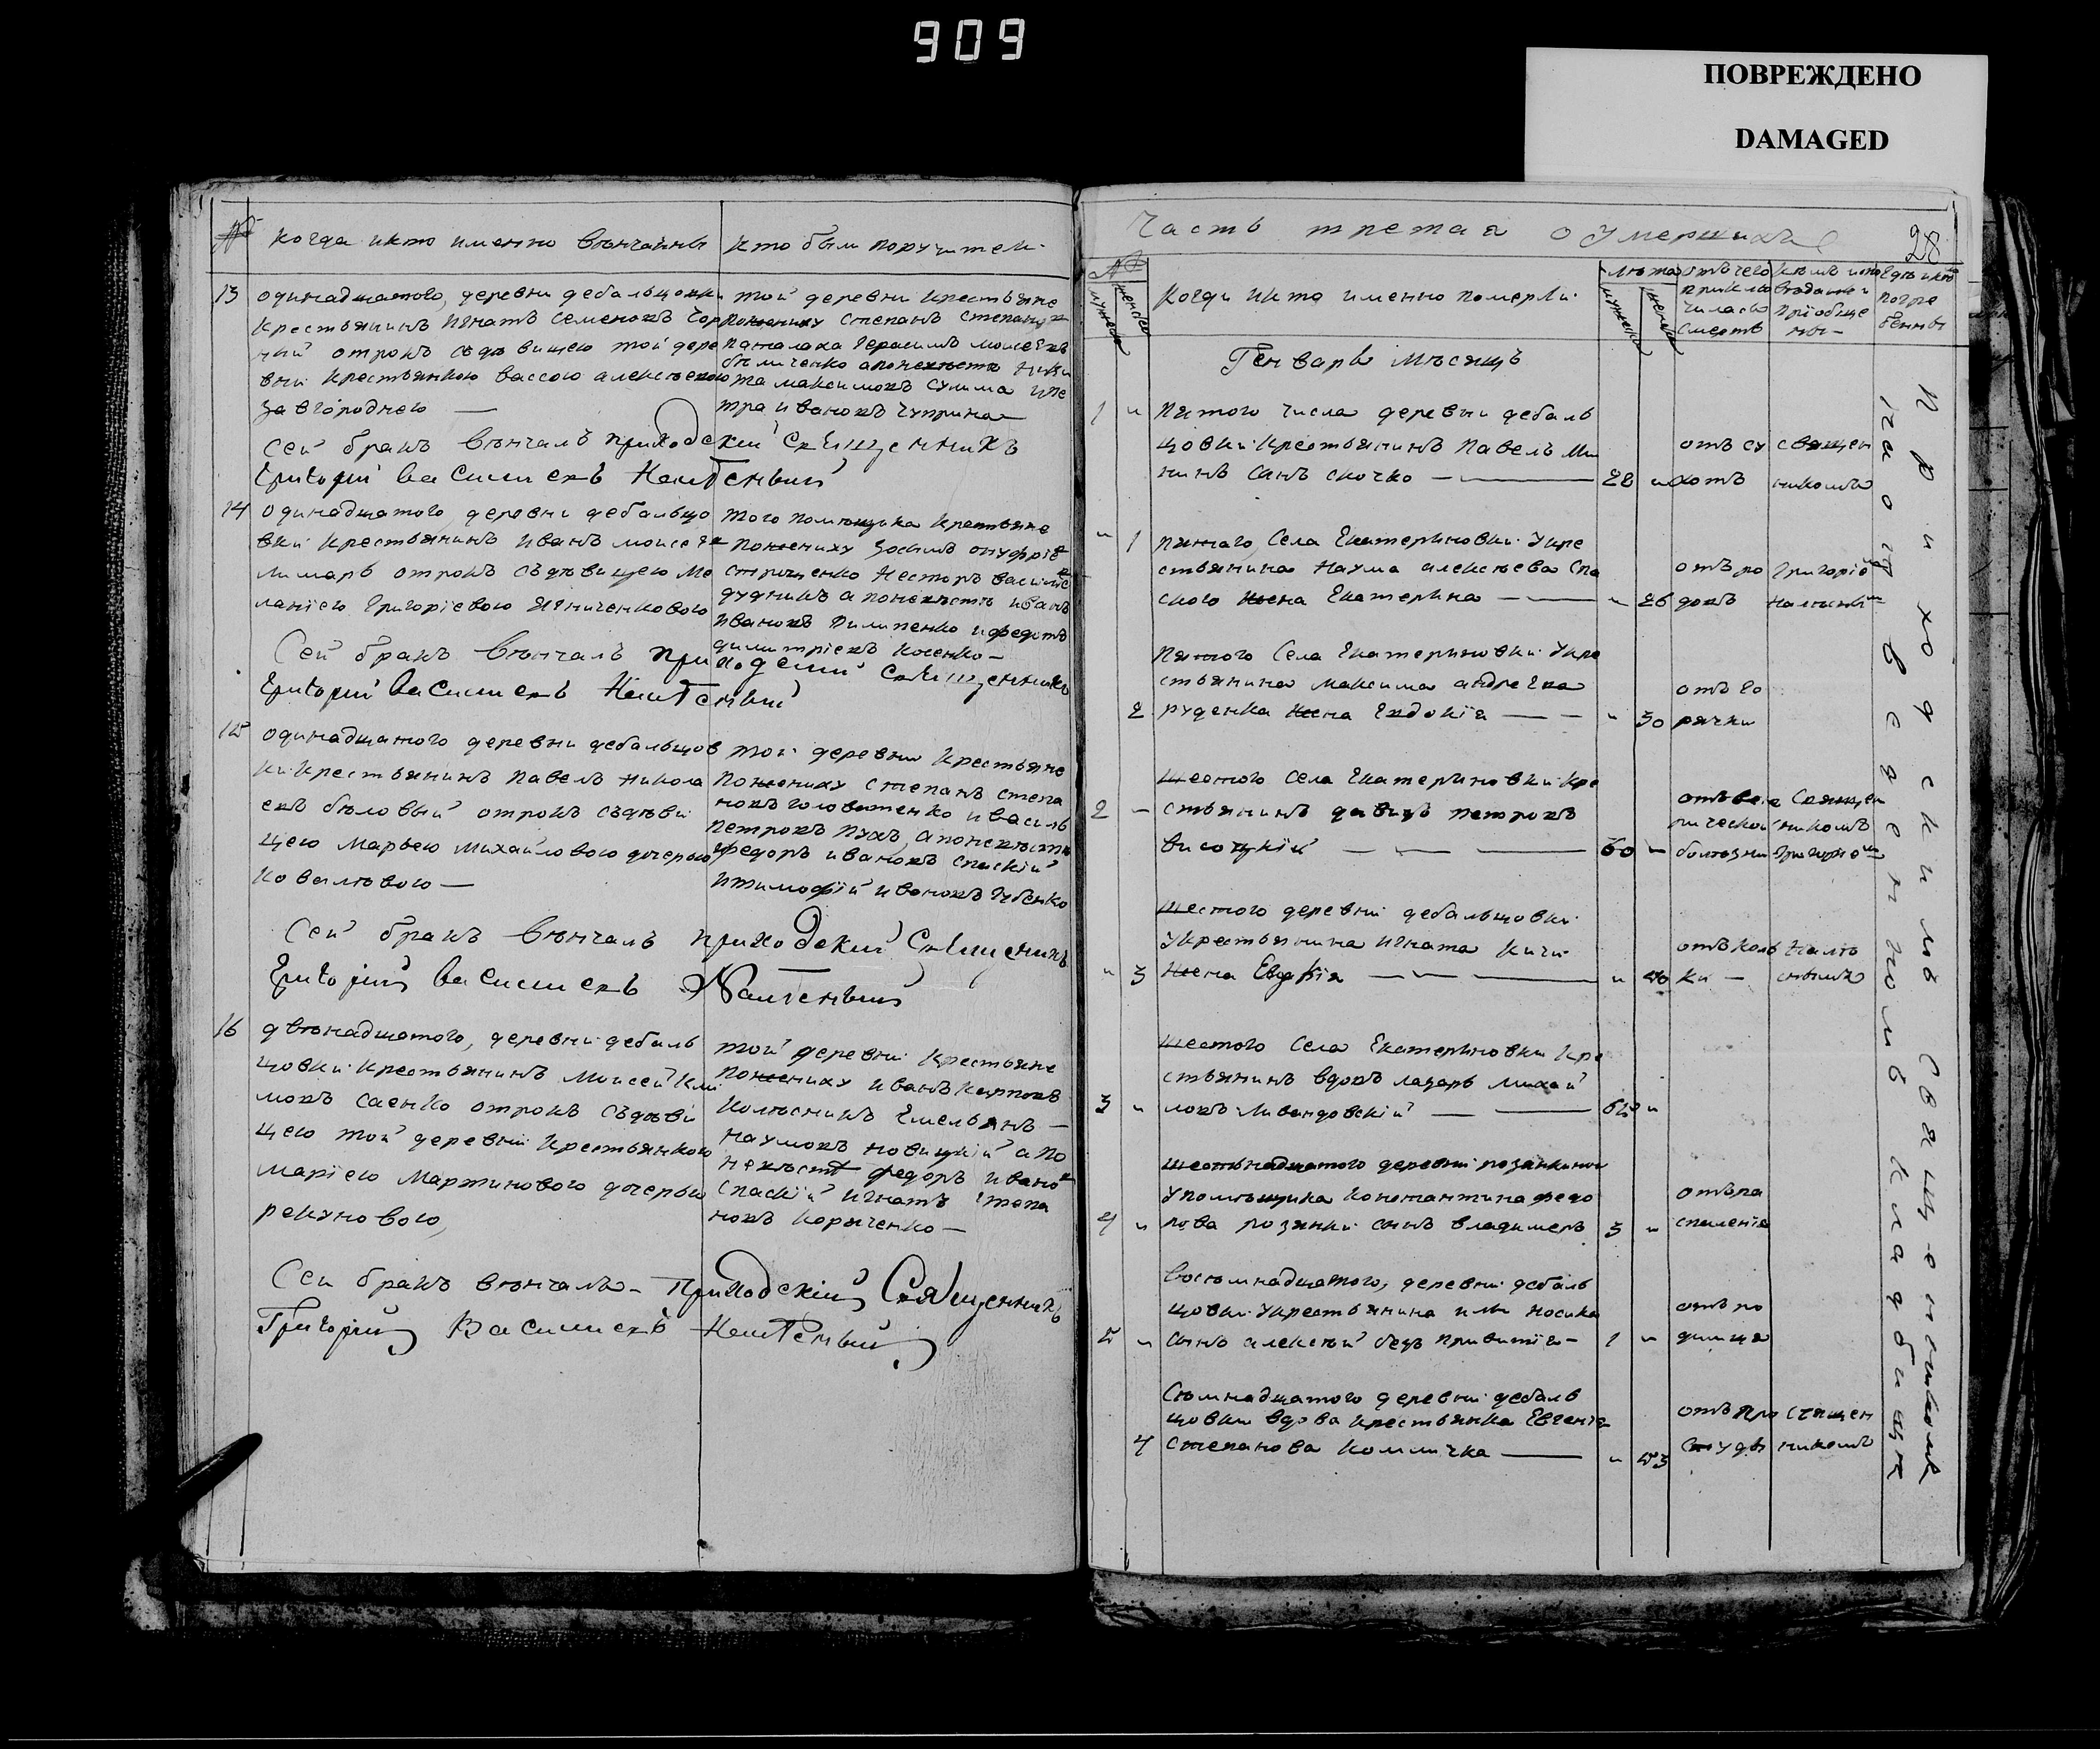 909
ПОВРЕЖДЕНО
DAMAGED
№
когда икто именно вѣнчанны
кто были поручители
13
одинадцатого, деревни дебальцовки
крестьянинъ Игнатъ Семеновъ
ный отрокъ съ девицею той дере
вни крестьянкою вассою алексѣевою
Загороднего —
той деревни крестьяне
пожениху степанъ степановъ
герасимъ моисеевъ
апоневѣстѣ
максимовъ сулима ипе
тра ивановъ чуприна
Сей бракъ вѣнчалъ приходскій Священникъ
Григорій Васильевъ
14
одинадцатого, деревни дебальцо
вки крестьянинъ иванъ моисеевъ
лимарь отрокъ съ девицею ме
ланіею григоріевою
того помѣщика крестьяне
пожениху
несторъ васильевъ
дудникъ а поневѣстѣ иванъ
ивановъ пилипенко ифедотъ
димитріевъ косенко —
Сей бракъ вѣнчалъ приходскій Священникъ
Григорій Васильевъ
15
одинадцатого деревни дебальцов
ки крестьянинъ павелъ никола
евъ бѣловый отрокъ съ деви
цею марьею михайловою дочерью
ковалѣвою —
той деревни крестьяне
пожениху степанъ степа
новъ головатенко ивасиль
петровъ пухъ, апоневѣстѣ
федоръ ивановъ спаскій
итимофій ивановъ губенко
Сей бракъ вѣнчалъ приходскій Священникъ
Григорій Васильевъ
16
двѣнадцатого, деревни дебаль
цовки крестьянинъ моисей кли
мовъ саенко отрокъ съ деви
цею той деревни крестьянкою
маріею мартиновою дочерью
рекуновою,
той деревни крестьяне
пожениху иванъ карповъ
колѣсникъ емельянъ —
наумовъ новицкій а по
невѣстѣ федоръ ивановъ
спаскій игнатъ степа
новъ коряченко —
Сей бракъ вѣнчалъ — Приходскій Священникъ
Григорій Васильевъ
Часть третая о умершихъ
28
№
мужеска
женска
когда икто именно померли
лѣта
мужеска
женска
отъ чего
приклю
чилась
смерть
кѣмъ испо
веданы и
пріобще
ны —
Где икѣмъ
погре
бенны
Генварь мѣсяцъ
1 "
пятого числа деревни дебаль
цовки крестьянинъ павелъ ми
нинъ сынъ скочко —
28 "
отъ су
хотъ
священ
никомъ
" 1
пятого, села екатериновки укре
стьянина наума алексѣева спа
ского жена екатерина —
" 26
отъ ро
довъ
григоріе
2
пятого села екатериновки укре
стьянина максима андреева
руденка жена евдокія —
" 30
отъ го
рячки
2 —
шестого села екатериновки кре
стьянинъ давидъ петровъ
висоцкій —
60 —
отъ вене
рической
болѣзни
священ
никомъ
григоріе
" 3
шестого деревни дебальцовки
укрестьянина игната кичи
жена Евдокія —
"
отъ коль
ки —
3 "
шестого села екатериновки кре
стьянинъ вдовъ лазарь михай
ловъ ливандовскій —
65 "
4 "
шестьнадцатого деревни розанкиной
упомѣщика константина федо
рова розанки сынъ владимеръ
3 "
отъ ра
спаленія
5 "
восемнадцатого, деревни дебаль
цовки укрестьянина ильи носика
сынъ алексѣй безъ привитія —
1 "
отъ ро
димца
4
семнадцатого деревни дебаль
цовки вдова крестьянка евгенія
степанова комличка —
" 53
отъ про
студы
священ
никомъ
Приходскимъ священникомъ
на отведенномъ кладбищѣ